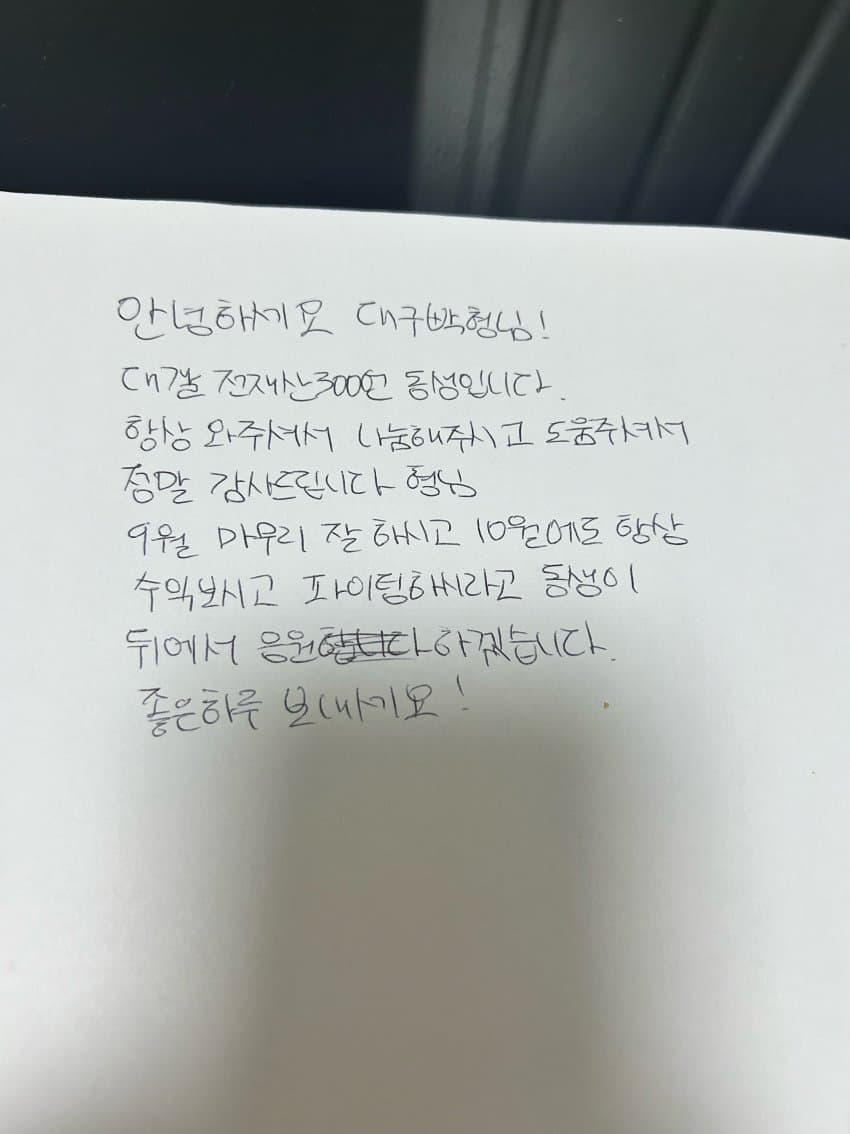 안녕하세요 대구박형님!
대갤 전재산300언 동생입니다.
항상 와주셔서 나눔해주시고 도움주셔서
정말 감사드립니다 형님
9월 마우리 잘 하시고 10월에도 항상
수익보시고 파이팅하시라고 동생이
뒤에서 응원합니다하겠습니다.
좋은하루 보내세요!